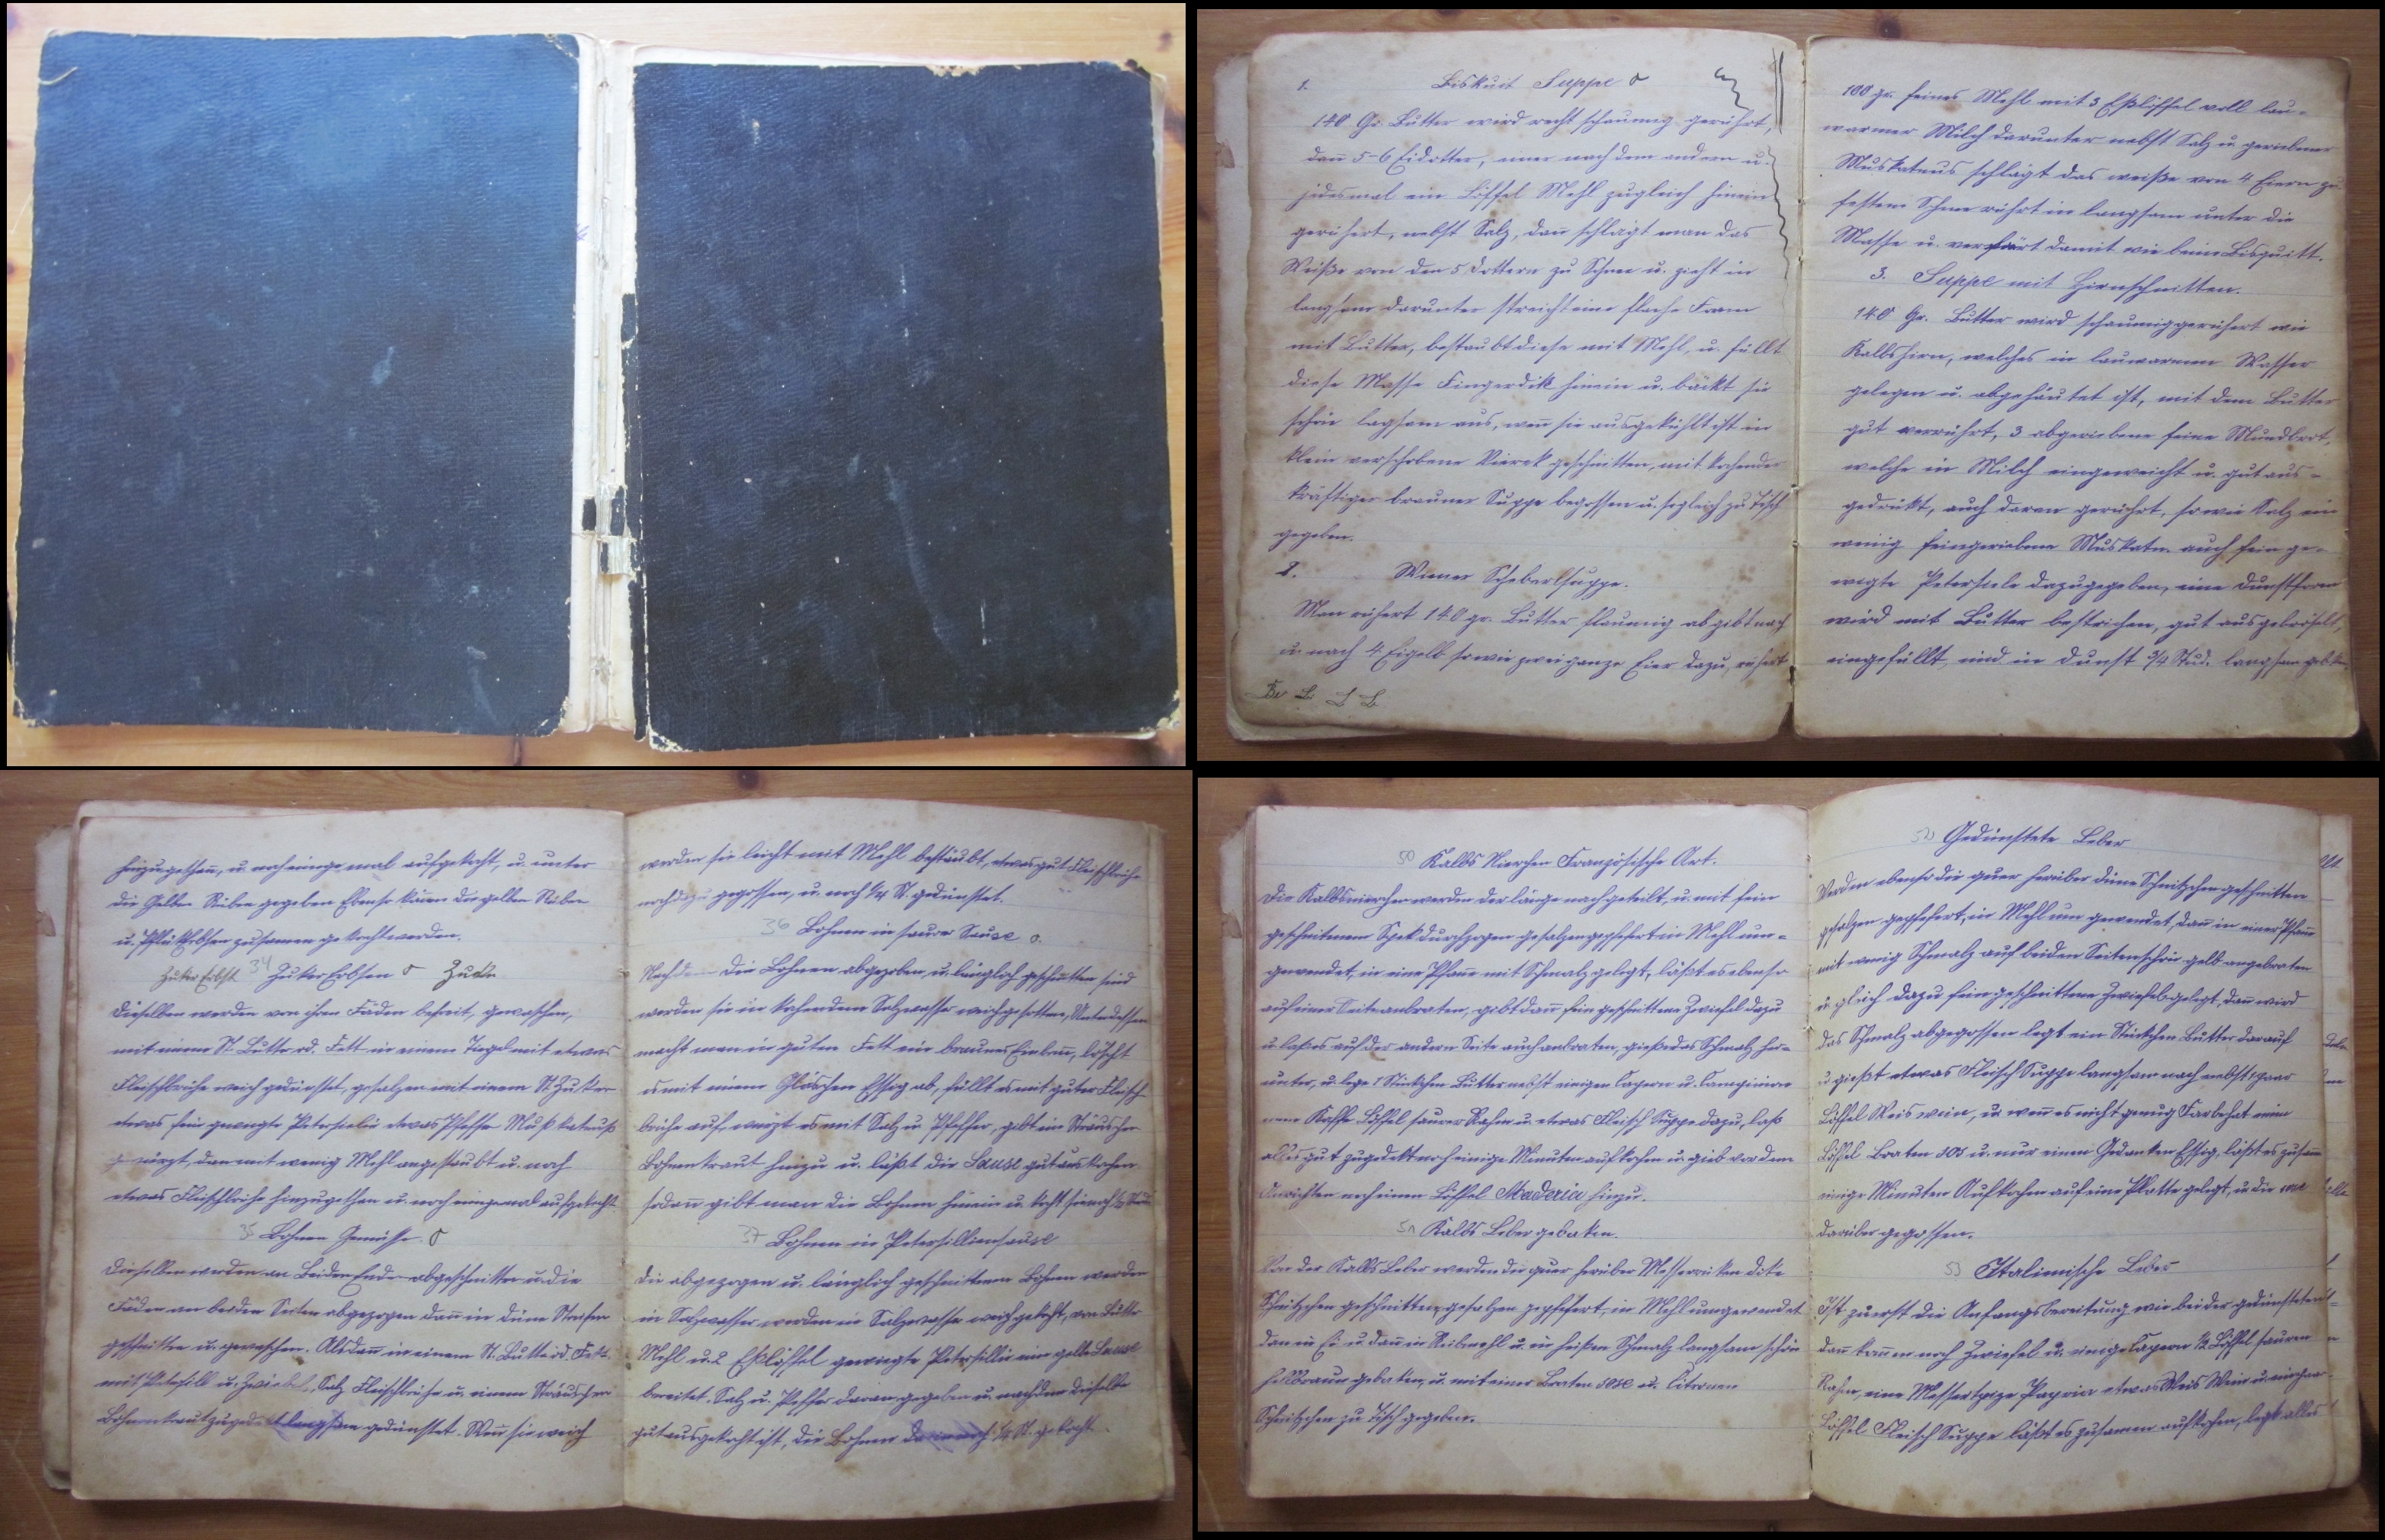 1. Biskuit Suppe
140 Gr. Butter wird recht schaumig gerührt,
dan̄ 5-6 Eidotter, einer nach dem andern u.
jedesmal ein Löffel Mehl zugleich hinein
gerührt, nebst Salz, dan̄ schlägt man das
Weiße von den 5 Dottern zu Schnee u. zieht in
langsam darunter streicht eine flache Form
mit Butter, bestaubt diese mit Mehl, u. füllt
diese Masse Fingerdik hinein u. bäckt sie
schön lagsam aus, wen̄ sie ausgekühlt ist in
klein verschobene Viereck geschnitten, mit kochender
kräftiger brauner Suppe begossen u. sogleich zu Tisch
gegeben.
2. Wiener Scheberlsuppe.
Man rührt 140 gr. Butter flaumig ab gibt nach
u. nach 4 Eigelb sowie zwei ganze Eier dazu, rührt
100 gr. feines Mehl mit 3 Eßlöffel voll lau-
warmer Milch darunter nebst Salz u. geriebener
Muskatnus schlägt das weiße von 4 Eiern zu
festem Schnee rührt in langsam unter die
Masse u. verfärt damit wie beim Bisquitt.
3. Suppe mit Hirnschnitten.
140 Gr. Butter wird schaumig gerührt wie
Kalbshirn, welches in lauwarmen Wasser
gelegen u. abgehäutet ist, mit dem Butter
gut verrührt, 3 abgeriebene feine Mundbrot,
welche in Milch eingeweicht u. gut aus-
gedrükt, auch daran gerührt, sowie Salz ein
wenig feingeriebene Muskatn. auch fein ge-
wiegte Petersiele dazugegeben, eine Dunstform
wird mit Butter bestrichen, gut ausgebröselt,
eingefüllt, und in Dunst 3/4 Stud. langsam
hinzugethan̄, u. noch einige mal aufgekocht, u. unter
die Gelben Rüben gegeben Ebenso kön̄en die gelben Rüben
u. Pflükerbsen zusamen gekocht werden.
Zuker Erbst 34 Zuker Erbsen Zucke
Dieselben werden von ihren Fäden befreit, gewaschen,
mit einem St. Butter od. Fett in einem Tiegel mit etwas
Fleischbrühe weich gedünstet, gesalzen mit einem St. Zuker
etwas fein gewiegte Petersielie etwas Pfeffer Muskatnuß
gewürzt, dan̄ mit wenig Mehl angestaubt u. noch
etwas Fleischbrühe hinzugethan u. noch einigemal aufgekocht
35 Bohnen Gemüsse.
Dieselben werden an Beiden Enden abgeschnitten u. die
Fäden an beiden Seiten abgezogen dan̄ in düne Streifen
geschnitten u. gewaschen. Alsdan̄ in einem St. Butter od. Fett
mit Petersill u. Zwiebel, Salz Fleischbrühe u. einem Sträuschen
Bohnenkraut zugedekt langsam gedünstet. Wen̄ sie weich
werden sie leicht mit Mehl bestaubt, etwas gut Fleischbrühe
noch dazu gegossen, u. noch 1/4 St. gedünstet.
36 Bohnen in saurer Sause
Nachdem die Bohnen abgezoben, u. länglich geschnitten sind
werden sie in kochendem Salzwasser weichgesotten, Unterdessen
macht man in guten Fett ein braunes Einbren̄, löscht
es mit einem Gläschen Essig ab, füllt es mit guter Fleisch
brühe auf würzt es mit Salz u. Pfeffer, gibt ein Sträuschen
Bohnenkraut hinzu u. läßt die Sause gut auskochen
sodan̄ gibt man die Bohnen hinein u. kocht sie noch 1/2 Stud.
37 Bohnen in Petersilliensause
Die abgezogen u. länglich geschnittenen Bohnen werden
in Salzwasser werden in Salzwasser weich gekocht, von Butter
Mehl u. 2 Eßlöffel gewiegte Petersillie eine gelbe Sause
bereitet. Salz u. Pfeffer daran gegeben u. nachdem dieselbe
gut ausgekocht ist, die Bohnen darin noch 1/4 St. gekocht.
50 Kalbs Nierchen Französische Art.
Die Kalbsnierchen werden der länge nach geteilt, u. mit fein
geschnittenem Spek durchzogen gesalzen gepfeffert in Mehl um-
gewendet, in eine Pfan̄e mit Schmalz gelegt, läßt es ebenso
auf einer Seite anbraten, gibt dan̄ fein geschnittene Zwiefel dazu
u. laß es auf der andern Seite auch anbraten, gieße das Schmalz her-
unter, u. lege 1 Stückchen Butter nebst einigen Capern u. Campinion
einen Kaffe Löffel saurer Rahm u. etwas Fleisch Suppe dazu, laß
alles gut zugedekt noch einige Minuten aufkochen u. gieb vor dem
Anrichten noch einen Löffel Maderia hinzu.
51 Kalbs Leber gebaken.
Von der Kalbs Leber werden die quer herüber Messerrüken dike
Schnitzchen geschnitten gesalzen gepfeffert, in Mehl umgewendet
dan in Ei u. dan̄ in Reibmehl u. in heißen Schmalz langsam schön
hellbraun gebaken, u. mit einer Braten Sose u. Citronen
Schnitzchen zu Tisch gegeben.
52 Gedünstete Leber
Werden ebenso die quer herüber düne Schnitzchen geschnitten
gesalzen gepfeffert, in Mehl um gewendet, dan̄ in einer Pfan̄e
mit wenig Schmalz auf beiden Seiten schön gelb angebraten
u. gleich dazu fein geschnittene Zwiefel gelegt, dan̄ wird
das Schmalz abgegossen legt ein Stückchen Butter darauf
u. gießt etwas Fleisch Suppe langsam nach nebst 1 paar
Löffel Weis wein, u. wen̄ es nicht genug Farbe hat einen
Löffel Braten Sos u. nur einen Gedanken Essig, läßt es zusam
einige Minuten Aufkochen auf eine Platte gelegt, u. die
darüber gegossen.
53 Italienische Leber
Ist zuerst die Anfangsbereitung wie bei der gedünsteten
dan̄ kom̄en noch Zwiefel u. einige Capern 1/2 Löffel sauren
Rahm, eine Messerspize Papria etwas Weis Wein u. einigen
Löffel Fleisch Suppe läßt es zusamen aufkochen, legt alles